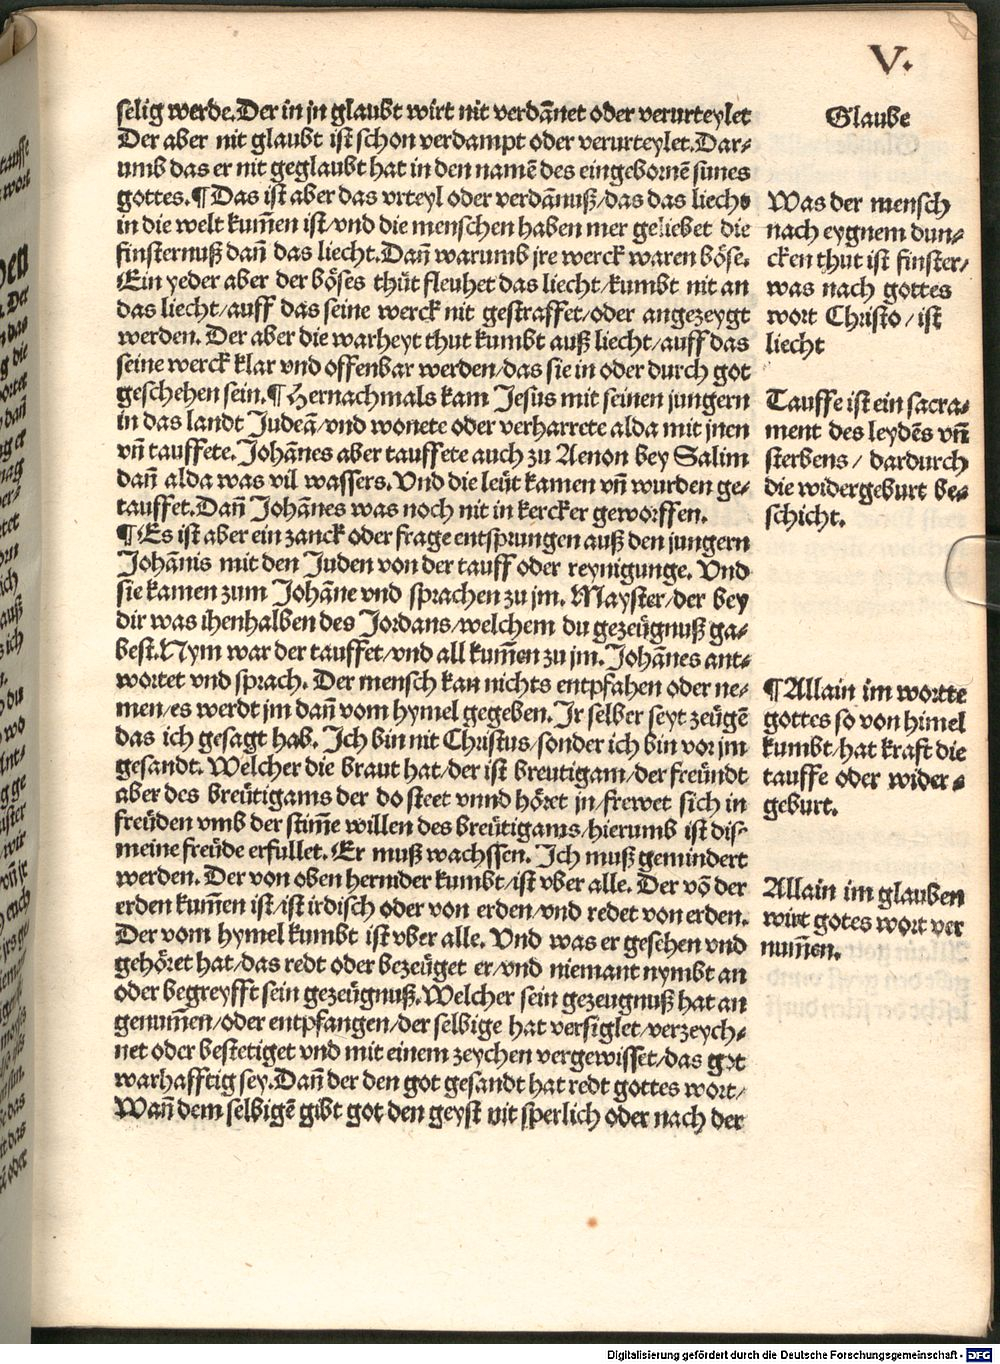 V.
selig werde. Der in jn glaubt wirt nit verdānet oder verurteylet
Der aber nit glaubt ist schon verdampt oder verurteylet. Dar-
umb das er nit geglaubt hat in den namē des eingebornē sunes
gottes. ¶ Das ist aber das vrteyl oder verdānuß/das das liecht
in die welt kum̄en ist/vnd die menschen haben mer geliebet die
finsternuß dan̄ das liecht. Dan̄ warumb jre werck waren böse.
Ein yeder aber der böses thūt fleuhet das liecht/kumbt nit an
das liecht/auff das seine werck nit gestraffet/oder angezeygt
werden. Der aber die warheyt thut kumbt auß liecht/auff das
seine werck klar vnd offenbar werden/das sie in oder durch got
geschehen sein. ¶ Hernachmals kam Jesus mit seinen jungern
in das landt Judeā/vnd wonete oder verharrete alda mit jnen
vn̄ tauffete. Johānes aber tauffete auch zu Aenon bey Salim
dan̄ alda was vil wassers. Vnd die leüt kamen vn̄ wurden ge-
tauffet. Dan̄ Johānes was noch nit in kercker geworffen.
¶ Es ist aber ein zanck oder frage entsprungen auß den jungern
Johānis mit den Juden von der tauff oder reynigunge. Vnd
sie kamen zum Johāne vnd sprachen zu jm. Mayster/der bey
dir was ihenhalben des Jordans/welchem du gezeügnuß ga-
best. Nym war der tauffet/vnd all kum̄en zu jm. Johānes ant-
wortet vnd sprach. Der mensch kan nichts entpfahen oder ne-
men/es werdt jm dan̄ vom hymel gegeben. Jr selber seyt zeügē
das ich gesagt hab. Ich bin nit Christus/sonder ich bin vor jm
gesandt. Welcher die braut hat/der ist breutigam/der freündt
aber des breütigams der do steet vnnd höret jn/frewet sich in
freüden vmb der stim̄e willen des breütigams/hierumb ist dise
meine freüde erfullet. Er muß wachssen. Ich muß gemindert
werden. Der von oben hernider kumbt/ist vber alle. Der vō der
erden kum̄en ist/ist irdisch oder von erden/vnd redet von erden.
Der vom hymel kumbt ist vber alle. Vnd was er gesehen vnd
gehöret hat/das redt oder bezeüget er/vnd niemant nymbt an
oder begreyfft sein gezeügnuß. Welcher sein gezeugnuß hat an
genum̄en/oder entpfangen/der selbige hat versiglet/verzeych-
net oder bestetiget vnd mit einem zeychen vergewisset/das got
warhafftig sey. Dan̄ der den got gesandt hat redt gottes wort/
Wan̄ dem selbigē gibt got den geyst nit sperlich oder nach der
Glaube
Was der mensch
nach eygnem dun-
cken thut ist finster/
was nach gottes
wort Christo/ist
liecht
Tauffe ist ein sacra-
ment des leydēs vn̄
sterbens/ dardurch
die widergeburt be-
schicht.
¶ Allain im wortte
gottes so von himel
kumbt/hat kraft die
tauffe oder wider-
geburt.
Allain im glauben
wirt gotes wort ver
num̄en.
Digitalisierung gefördert durch die Deutsche Forschungsgemeinschaft - DFG